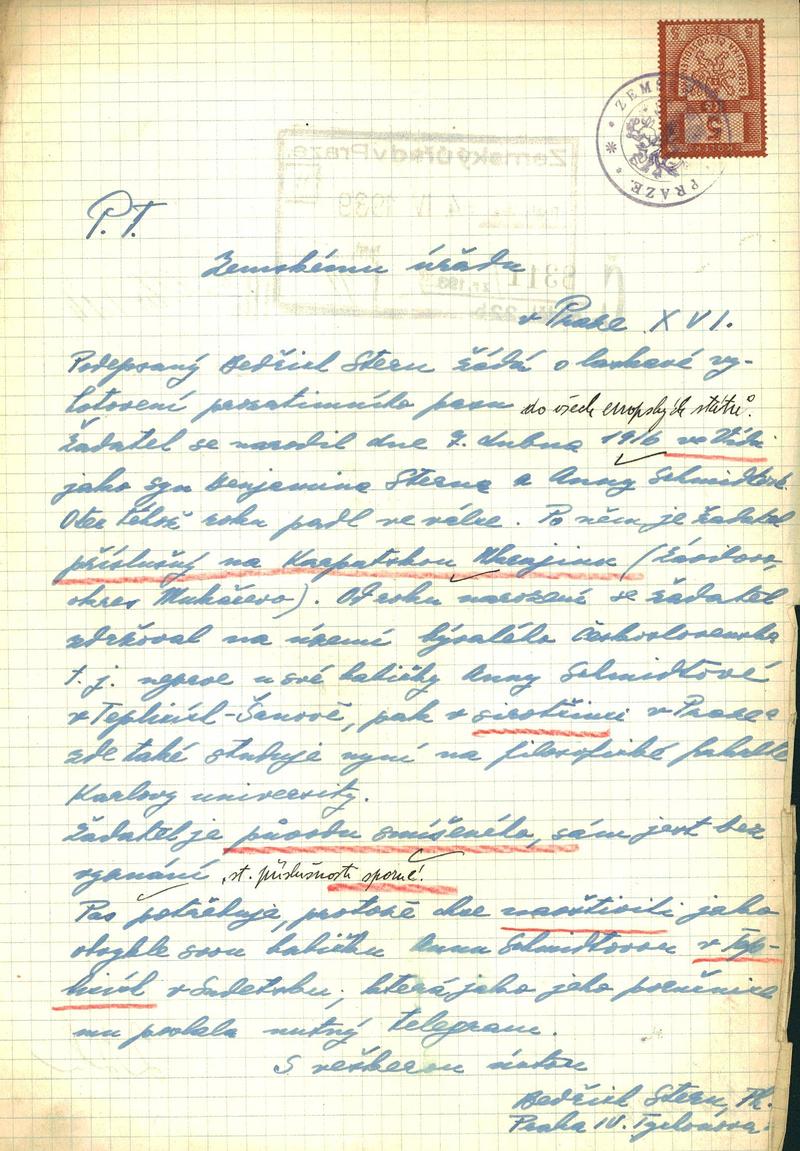 5 5
KOLEK
ZEMS
PRAZE.
Zemský úřad v Praze.
4 IV 1939
8311
P. T.
Zemskému úřadu
v Praze XVI.
Podepsaný Bedřich Stern žádá o laskavé vy-
hotovení prozatimního pasu do všech evropských států.
Žadatel se narodil dne 7. dubna 1916 ve Vídni
jako syn Benjamina Sterna a Anny Schmidtové.
Otec téhož roku padl ve válce. Po něm je žadatel
příslušný na Karpatskou Ukrajinu (
okres Mukačevo). Od roku narození se žadatel
zdržoval na území bývalého Československa
t. j. nejprve u své babičky Anny Schmidtové
v Teplicích-Šanově, pak v sirotčinci v Praze a
zde také studuje nyní na filosofické fakultě
Karlovy university.
Žadatel je původu smíšeného, sám jest bez
vyznání, st. příslušnosti sporné.
Pas potřebuje, protože chce navštíviti jako
obvykle svou babičku Annu Schmidtovou v Tep-
licích v Sudetsku, která jako jeho poručnice
mu poslala nutný telegram.
S veškerou úctou
Bedřich Stern,
Praha IV.